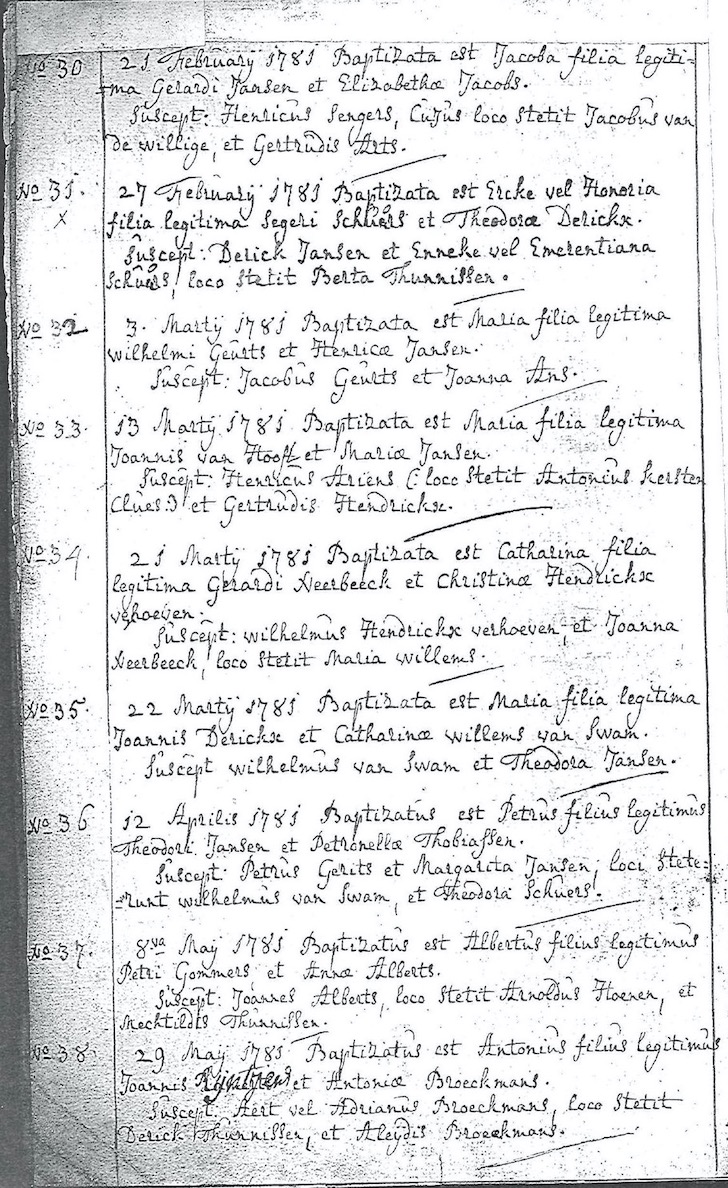 No 30 21 Februarij 1781 Baptizata est Jacoba filia legiti=
=ma Gerardi Jansen et Elizabethæ Jacobs.
Suscept: Henricus Sengers, Cujus loco stetit Jacobus van
de willige, et Gertrudis Arts.
No 31. 27 Februarij 1781 Baptizata est Ercke vel Honoria
x filia legitima Segeri Schuers et Theodoræ Derickx.
Suscept: Derick Jansen et Enneke vel Emerentiana
Schuers, loco stetit Berta Thunnissen.
No 32 3. Martij 1781 Baptizata est Maria filia legitima
wilhelmi Geurts et Henricæ Jansen.
Suscept: Jacobus Geurts et Joanna Ans.
No 33. 13 Martij 1781 Baptizata est Maria filia legitima
Joannis van Hooft et Mariæ Jansen.
Suscept: Henricus Ariens (: loco stetit Antonius Kersten
Clues:) et Gertrudis Hendrickx.
No 34. 21 Martij 1781 Baptizata est Catharina filia
legitima Gerardi Neerbeeck et Christinæ Hendrickx
verhoeven.
Suscept: wilhelmus Hendrickx verhoeven, et Joanna
Neerbeeck, loco stetit Maria willems.
No 35. 22 Martij 1781 Baptizata est Maria filia legitima
Joannis Derickx et Catharinæ willems van Swam.
Suscept wilhelmus van Swam et Theodora Jansen.
No 36 12 Aprilis 1781 Baptizatus est Petrus filius legitimus
Theodori Jansen et Petronellæ Thobiassen.
Suscept: Petrus Gerits et Margarita Jansen, loci stete=
=runt wilhelmus van Swam, et Theodora Schuers.
No 37. 8va Maij 1781 Baptizatus est Albertus filius legitimus
Petri Gommers et Annæ Alberts.
Suscept: Joannes Alberts, loco stetit Arnoldus Hoenen, et
Mechtildis Thunnissen.
No 38. 29 Maij 1781 Baptizatus est Antonius filius legitimus
Joannis et Antoniæ Broeckmans.
Suscept: Aert vel Adrianus Broeckmans, loco stetit
Derick Thunnissen, et Aleydis Broeckmans.